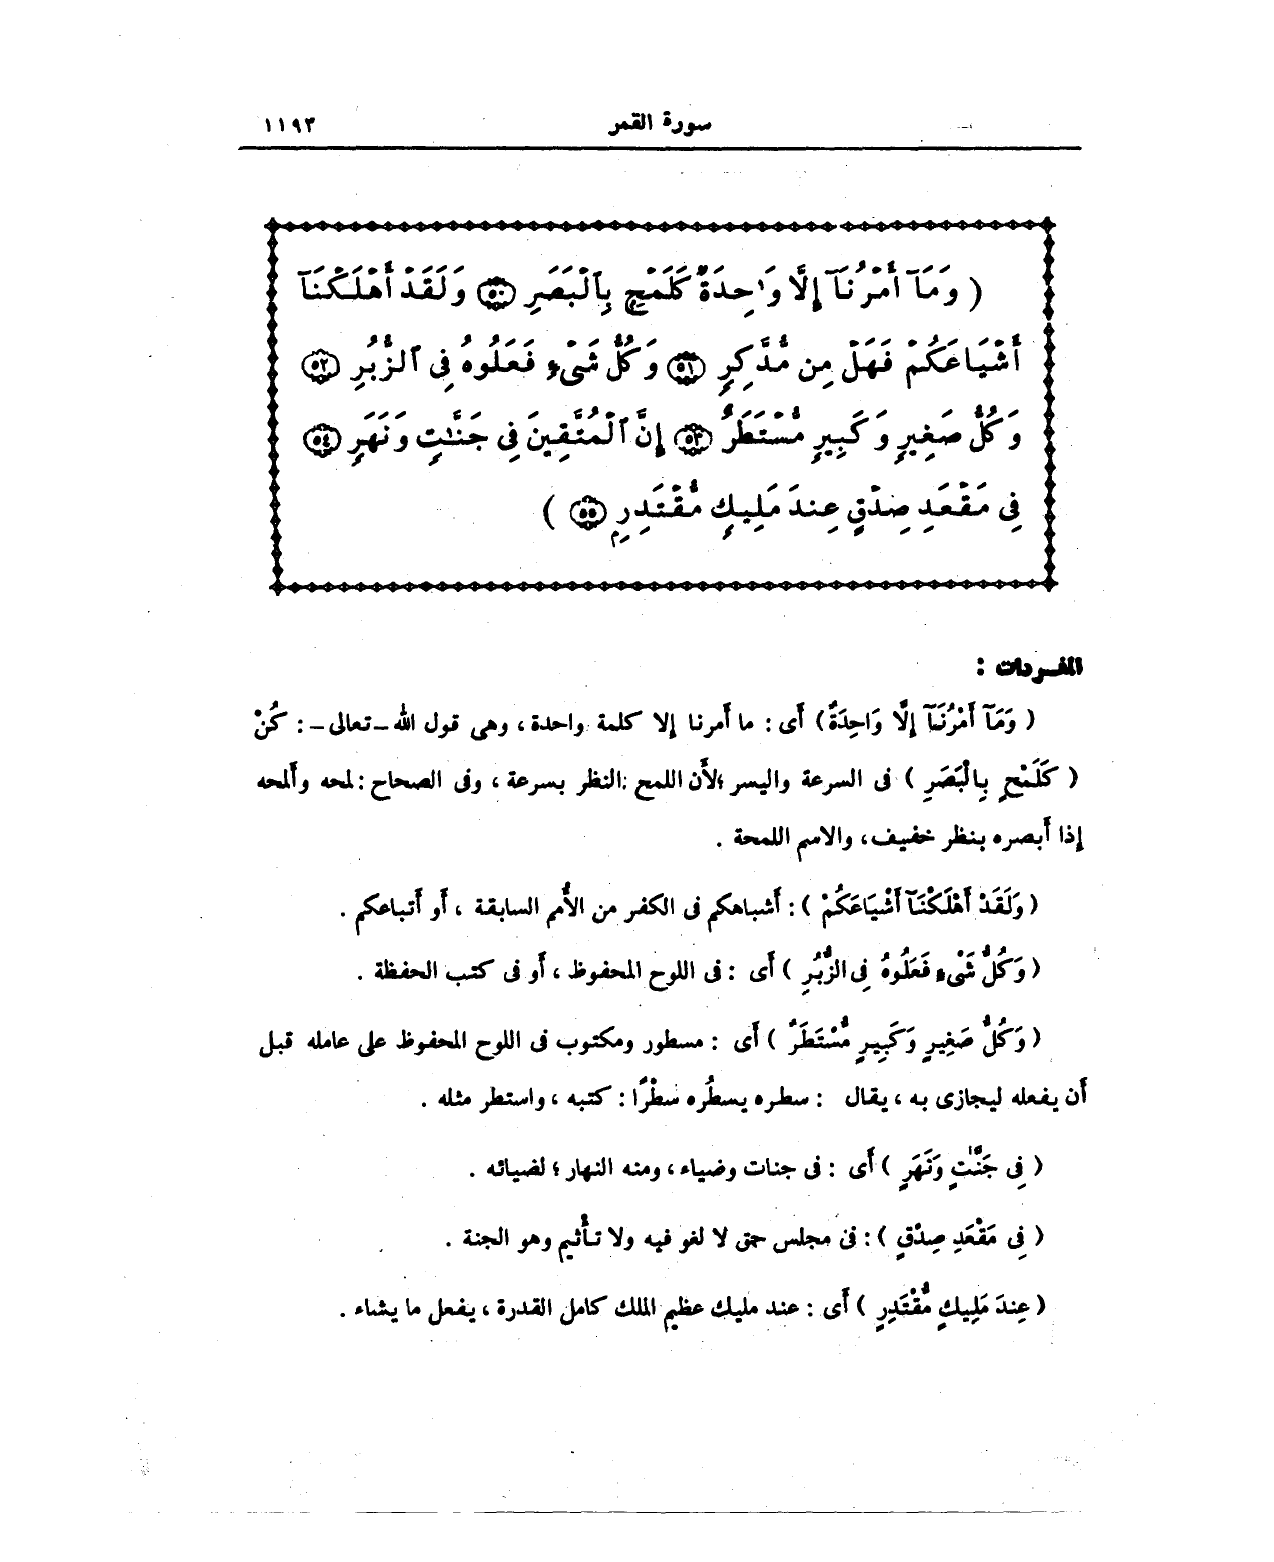 سورة القمر ١١٩٣
( وَمَآ أَمْرُنَآ إِلَّا وَٰحِدَةٌ كَلَمْحٍۭ بِٱلْبَصَرِ ۝٥٠ وَلَقَدْ أَهْلَكْنَآ
أَشْيَاعَكُمْ فَهَلْ مِن مُّدَّكِرٍ ۝٥١ وَكُلُّ شَىْءٍ فَعَلُوهُ فِى ٱلزُّبُرِ ۝٥٢
وَكُلُّ صَغِيرٍ وَكَبِيرٍ مُّسْتَطَرٌ ۝٥٣ إِنَّ ٱلْمُتَّقِينَ فِى جَنَّٰتٍ وَنَهَرٍ ۝٥٤
فِى مَقْعَدِ صِدْقٍ عِندَ مَلِيكٍ مُّقْتَدِرٍۭ ۝٥٥ )
المفـردات :
( وَمَآ أَمْرُنَآ إِلَّا وَاحِدَةٌ ) أَى : ما أَمرنا إلا كلمة واحدة ، وهى قول الله ـ تعالى ـ : كُنْ
( كَلَمْحٍ بِالْبَصَرِ ) فى السرعة واليسر ؛ لأَن اللمح : النظر بسرعة ، وفى الصحاح : لمحه وأَلمحه
إذا أَبصره بنظر خفيف ، والاسم اللمحة .
( وَلَقَدْ أَهْلَكْنَآ أَشْيَاعَكُمْ ) : أَشباهكم فى الكفر من الأُمم السابقة ، أَو أَتباعكم .
( وَكُلُّ شَىْءٍ فَعَلُوهُ فِى الزُّبُرِ ) أَى : فى اللوح المحفوظ ، أَو فى كتب الحفظة .
( وَكُلُّ صَغِيرٍ وَكَبِيرٍ مُّسْتَطَرٌ ) أَى : مسطور ومكتوب فى اللوح المحفوظ على عامله قبل
أَن يفعله ليجازى به ، يقال : سطره يسطُره سطْرًا : كتبه ، واستطر مثله .
( فِى جَنَّٰتٍ وَنَهَرٍ ) أَى : فى جنات وضياء ، ومنه النهار ؛ لضيائه .
( فِى مَقْعَدِ صِدْقٍ ) : فى مجلس حق لا لغو فيه ولا تأْثيم وهو الجنة .
( عِندَ مَلِيكٍ مُّقْتَدِرٍ ) أَى : عند مليك عظيم الملك كامل القدرة ، يفعل ما يشاء .